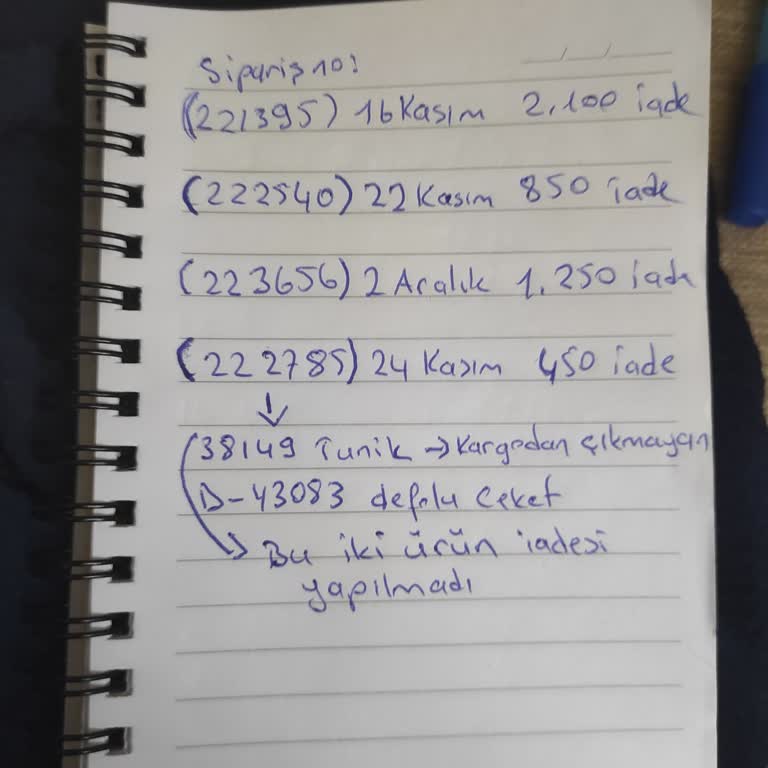 Sipariş no:
(221395) 16 Kasım 2.100 iade
(222540) 22 Kasım 850 iade
(223656) 2 Aralık 1.250 iade
(222785) 24 Kasım 450 iade
↓
38149 Tunik → Kargodan çıkmayan
D-43083 defolu ceket
→ Bu iki ürün iadesi
yapılmadı